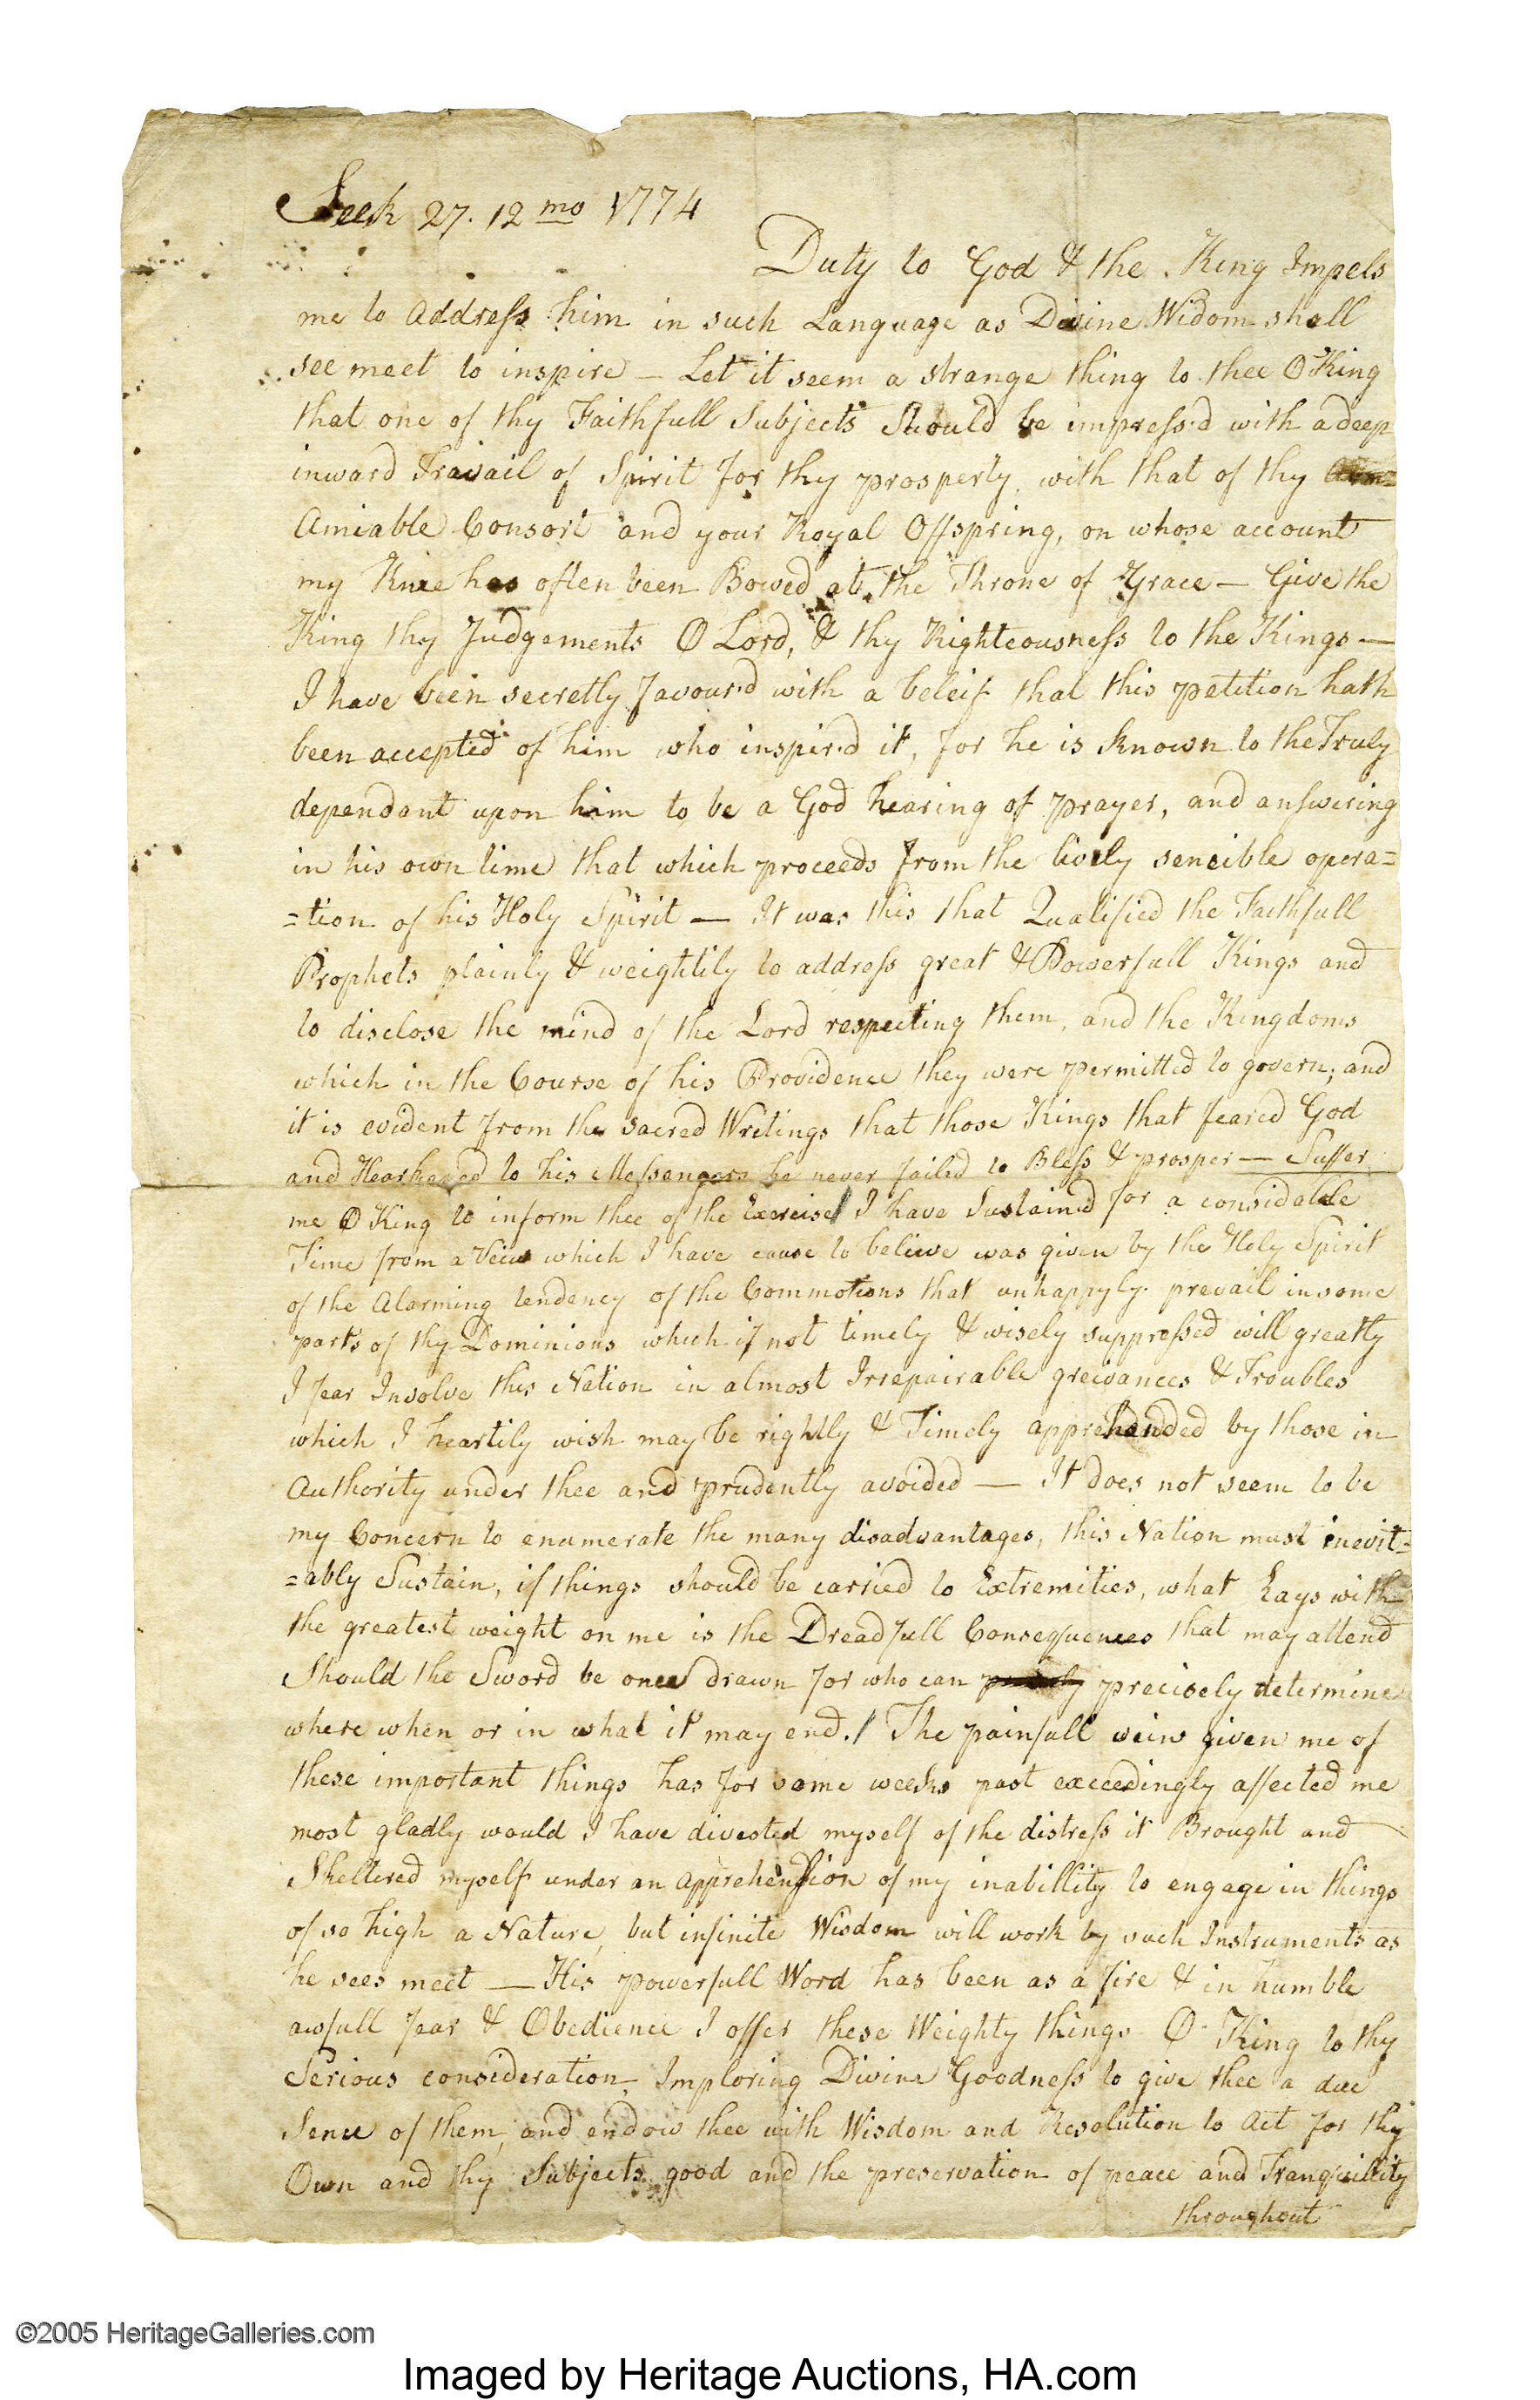 Leek 27. 12 mo 1774
Duty to God & the King Impels
me to Address him in such Language as Divine Widom shall
see meet to inspire — Let it seem a strange thing to thee O King
that one of thy Faithfull Subjects Should be impress'd with a deep
inward Travail of Spirit for thy prosperty with that of thy
Amiable Consort and your Royal Offspring, on whose account
my Knee has often been Bowed at the Throne of Grace — Give the
King thy Judgements O Lord, & thy Righteousness to the Kings —
I have been secretly favour'd with a beleif that this petition hath
been accepted of him who inspir'd it, for he is known to the Truly
dependant upon him to be a God hearing of prayer, and answering
in his own time that which proceeds from the lively sencible opera=
=tion of his Holy Spirit — It was this that Qualified the Faithfull
Prophets plainly & weightily to address great & Powerfull Kings and
to disclose the mind of the Lord respecting them, and the Kingdoms
which in the Course of his Providence they were permitted to govern; and
it is evident from the sacred Writings that those Kings that feared God
and Hearkened to his Messengers he never failed to Bless & prosper — Suffer
me O King to inform thee of the Exercise I have Sustain'd for a considable
Time from a Veiw which I have cause to believe was given by the Holy Spirit
of the Alarming tendency of the Commotions that unhappyly prevail in some
parts of thy Dominions which if not timely & wisely suppressed will greatly
I fear Involve this Nation in almost Irrepairable greivances & Troubles
which I heartily wish may be rightly & Timely apprehanded by those in
Authority under thee and prudently avoided — It does not seem to be
my Concern to enumerate the many disadvantages, this Nation must inevit=
=ably Sustain, if things should be carried to Extremities, what Lays with
the greatest weight on me is the Dreadfull Consequences that may attend
Should the Sword be once drawn for who can precisely determine
where when or in what it may end. / The painfull veiw given me of
these important things has for some weeks past exceedingly affected me
most gladly would I have divested myself of the distress it Brought and
Sheltered myself under an apprehension of my inabillity to engage in things
of so high a Nature, but infinite Wisdom will work by such Instruments as
he sees meet — His powerfull Word has been as a fire & in humble
awfull fear & Obedience I offer these Weighty things O King to thy
Serious consideration, Imploring Divine Goodness to give thee a due
Sence of them, and endow thee with Wisdom and Resolution to Act for thy
Own and thy Subjects good and the preservation of peace and Tranquillity
throughout
©2005 HeritageGalleries.com
Imaged by Heritage Auctions, HA.com